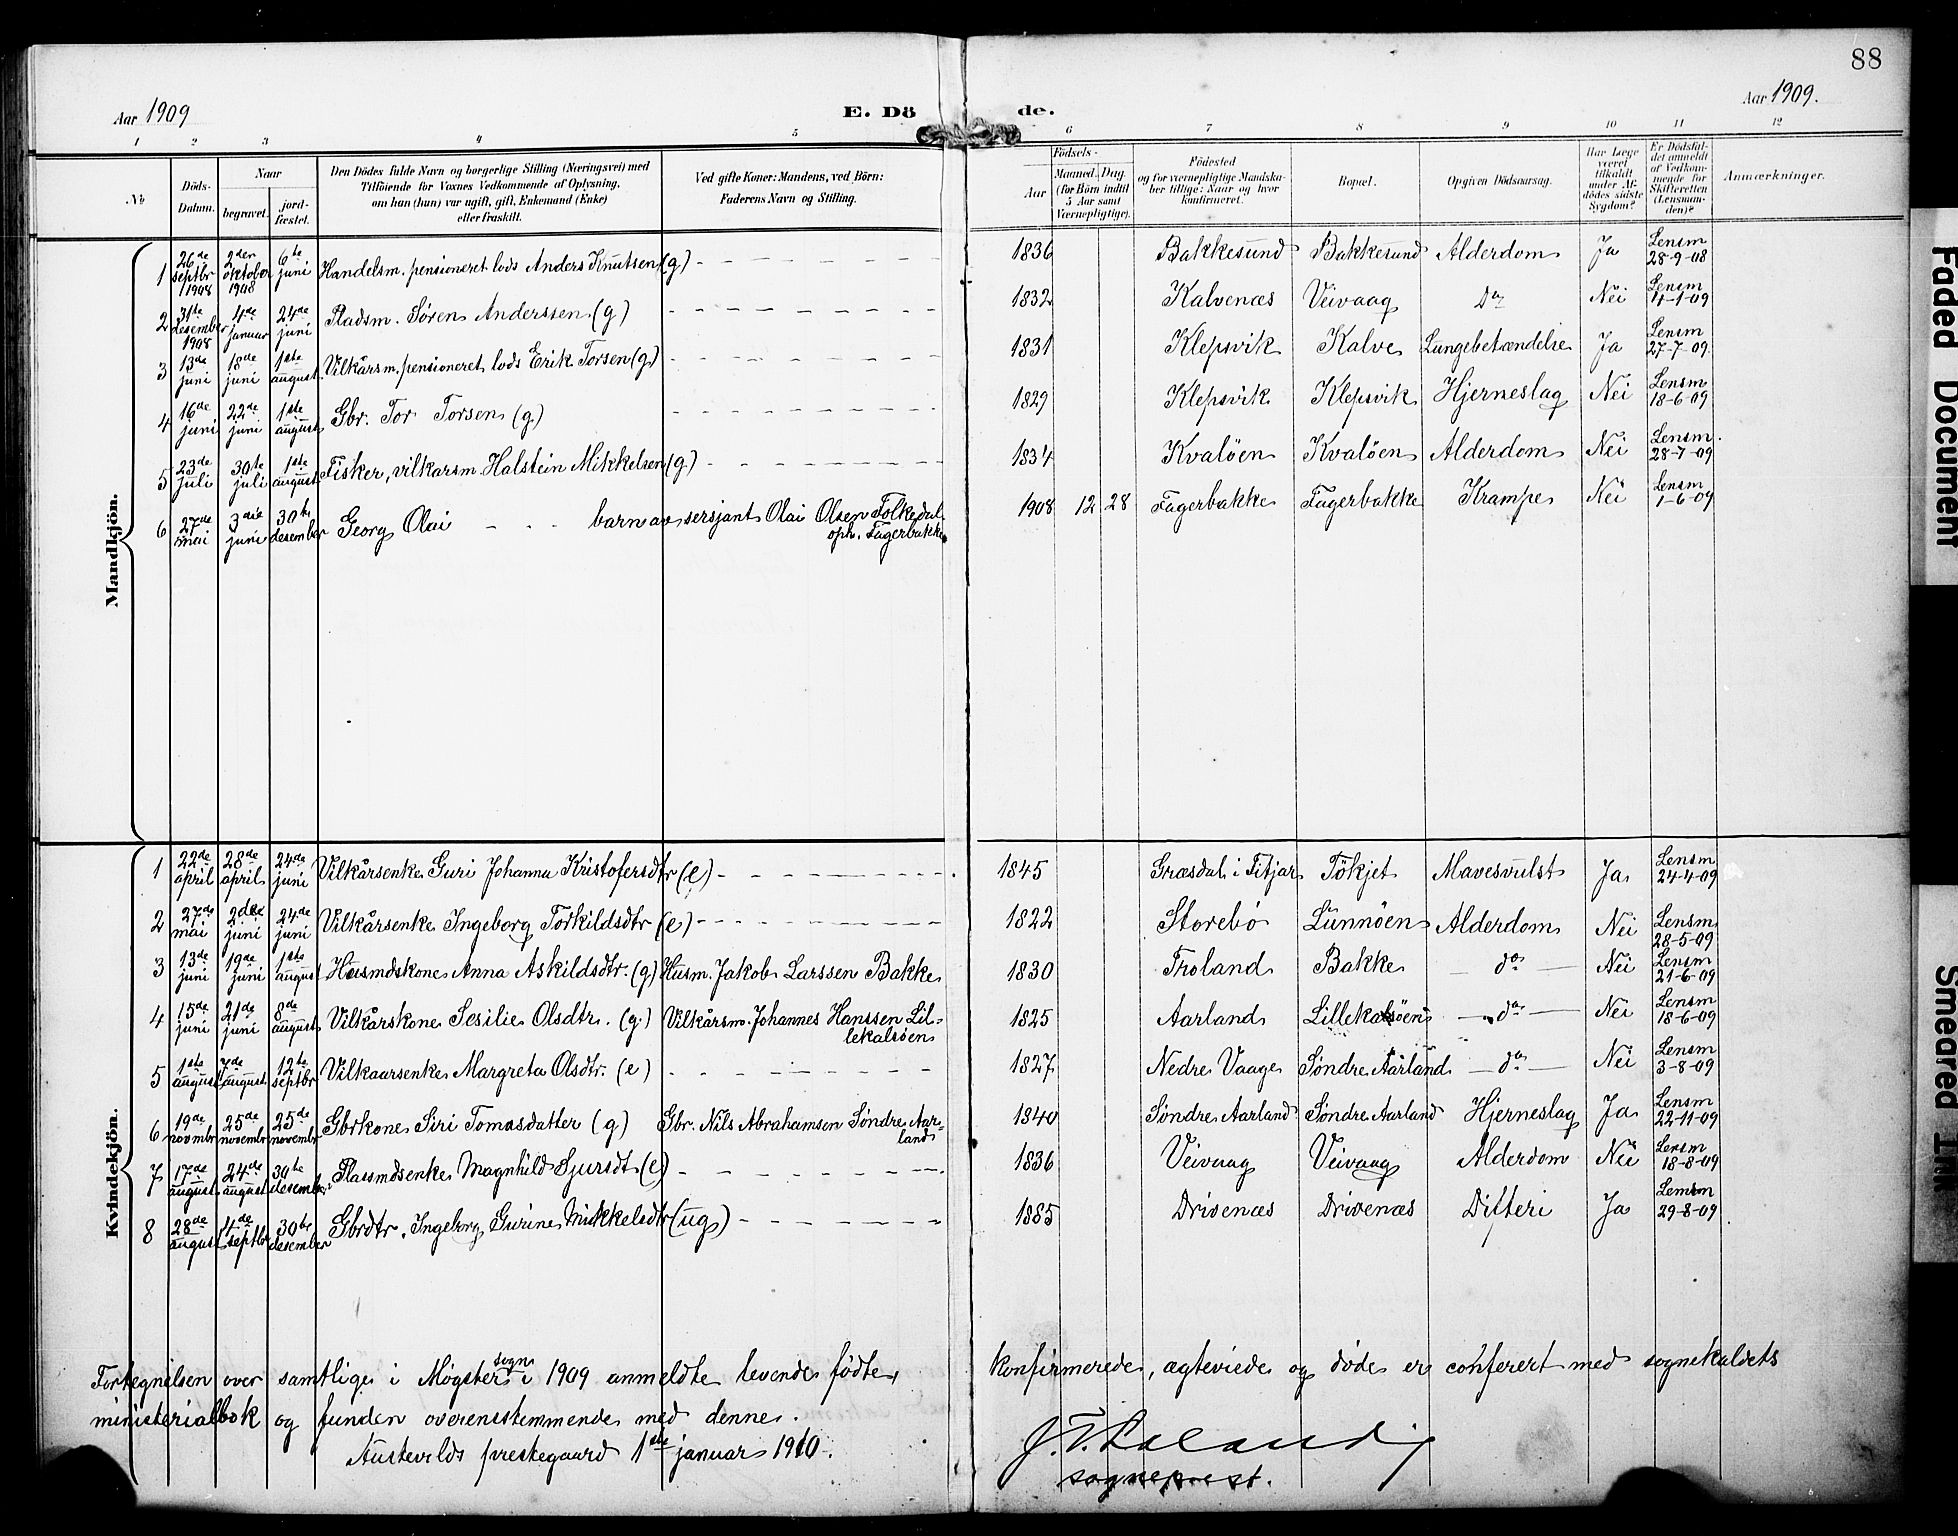 88
Aar 1909
E. Dö de.
Aar 1909.
1 2 3 4 5 6 7 8 9 10 11 12
No
Döds-Datum.
Naar
begravet.
jord-fæstet.
Den Dödes fulde Navn og borgerlige Stilling (Næringsvei) med
Tilföiende for Voxnes Vedkommende af Oplysning,
om han (hun) var ugift, gift, Enkemand (Enke)
eller fraskilt.
Ved gifte Koner: Mandens, ved Börn:
Faderens Navn og Stilling.
Födsels-
Aar
Maaned. Dag.
(for Börn indtil
5 Aar samt
Værnepligtige).
Födested
og for værnepligtige Mandska-
ber tillige: Naar og hvor
konfirmeret.
Bopæl.
Opgiven Dödsaarsag.
Har Læge
været
tilkaldt
under Af-
dödes sidste
Sygdom?
Er Dödsfal-
det anmeldt
af Vedkom-
mende for
Skifteretten
(Lensman-
den)?
Anmærkninger.
Mandkjön.
1 26de septbr 1908 2den oktober 1908 6te juni Handelsm. pensioneret lods Anders Knutsen (g) 1836 Bakkesund Bakkesund Alderdom Ja Lensm 28-9-08
2 31te desember 1908 4de januar 24de juni Pladsm. Søren Anderssen (g) 1832 Kalvenæs Veivaag Do Nei Lensm 4-1-09
3 13de juni 18de juni 1ste august Vilkårsm. pensioneret lods Erik Torsen (g) 1831 Klepsvik Kalve Lungebetændelse Ja Lensm 27-7-09.
4 16de juni 22de juni 1ste august Gbr. Tor Torsen (g) 1829 Klepsvik Klepsvik Hjerneslag Nei Lensm 18-6-09
5 23de juli 30te juli 1ste august Fisker, vilkarsm. Halstein Mikkelsen (g) 1834 Kvaløen Kvaløen Alderdom Nei Lensm. 28-7-09
6 27de mai 3die juni 30te desember Georg Olai barn av sersjant Olai Olsen Folkedal oph. Fagerbakke 1908 12 28 Fagerbakke Fagerbakke Krampe Nei Lensm 1-6-09
Kvindekjön.
1 22de april 28de april 24de juni Vilkårsenke Guri Johanna Kristofersdtr (e) 1845 Græsdal i Fitjar Tökjet Mavesvulst Ja Lensm 24-4-09
2 27de mai 2den juni 24de juni Vilkårsenke Ingeborg Torkildsdtr (e) 1822 Storebø Lunnøen Alderdom Nei Lensm 28-5-09
3 13de juni 19de juni 1ste august Husmdskone Anna Askildsdtr. (g) Husm. Jakob Larssen Bakke 1830 Troland Bakke do Nei Lensm 21-6-09
4 15de juni 21de juni 8de august Vilkårskone Sesilie Olsdtr. (g.) Vilkårsm. Johannes Hanssen Lil-
lekalsøen 1825 Aarland Lillekalsøen do Nei Lensm 18-6-09
5 1ste august 7de august 12te septbr Vilkaarsenke Margreta Olsdtr. (e) 1827 Nedre Vaage Søndre Aarland do Nei Lensm 3-8-09
6 19de novmbr 25de novembr 25de novembr Gbrkone Siri Tomasdatter (g) Gbr. Nils Abrahamsen Søndre Aar-
land 1840 Søndre Aarland Søndre Aarland Hjerneslag Ja Lensm 22-11-09
7 17de august 24de august 30te desember Plassmdsenke Magnhild Sjursdt (e) 1836 Veivaag Veivaag Alderdom Nei Lensm 18-8-09
8 28de august 4de septbr 30te desember Gbrdtr. Ingeborg Gurine Mikkelsdtr (ug) 1885 Drivenæs Drivenæs Difteri Ja Lensm 29-8-09
Fortegnelsen over samtlige i Møgster sogn i 1909 anmeldte levende fødte, konfirmerede, ægteviede og døde er conferert med sognekaldets
ministerialbok og funden overensstemmende med denne.
Austevolds prestegaard 1ste januar 1910.
sogneprest.
Faded Document
Smeared Ink